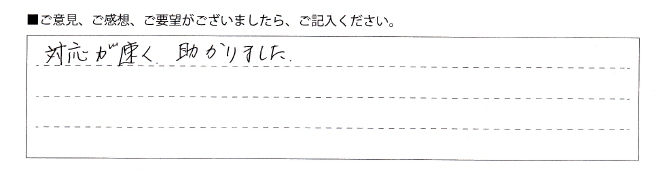 ■ご意見、ご感想、ご要望がございましたら、ご記入ください。
対応が速く 助かりました.